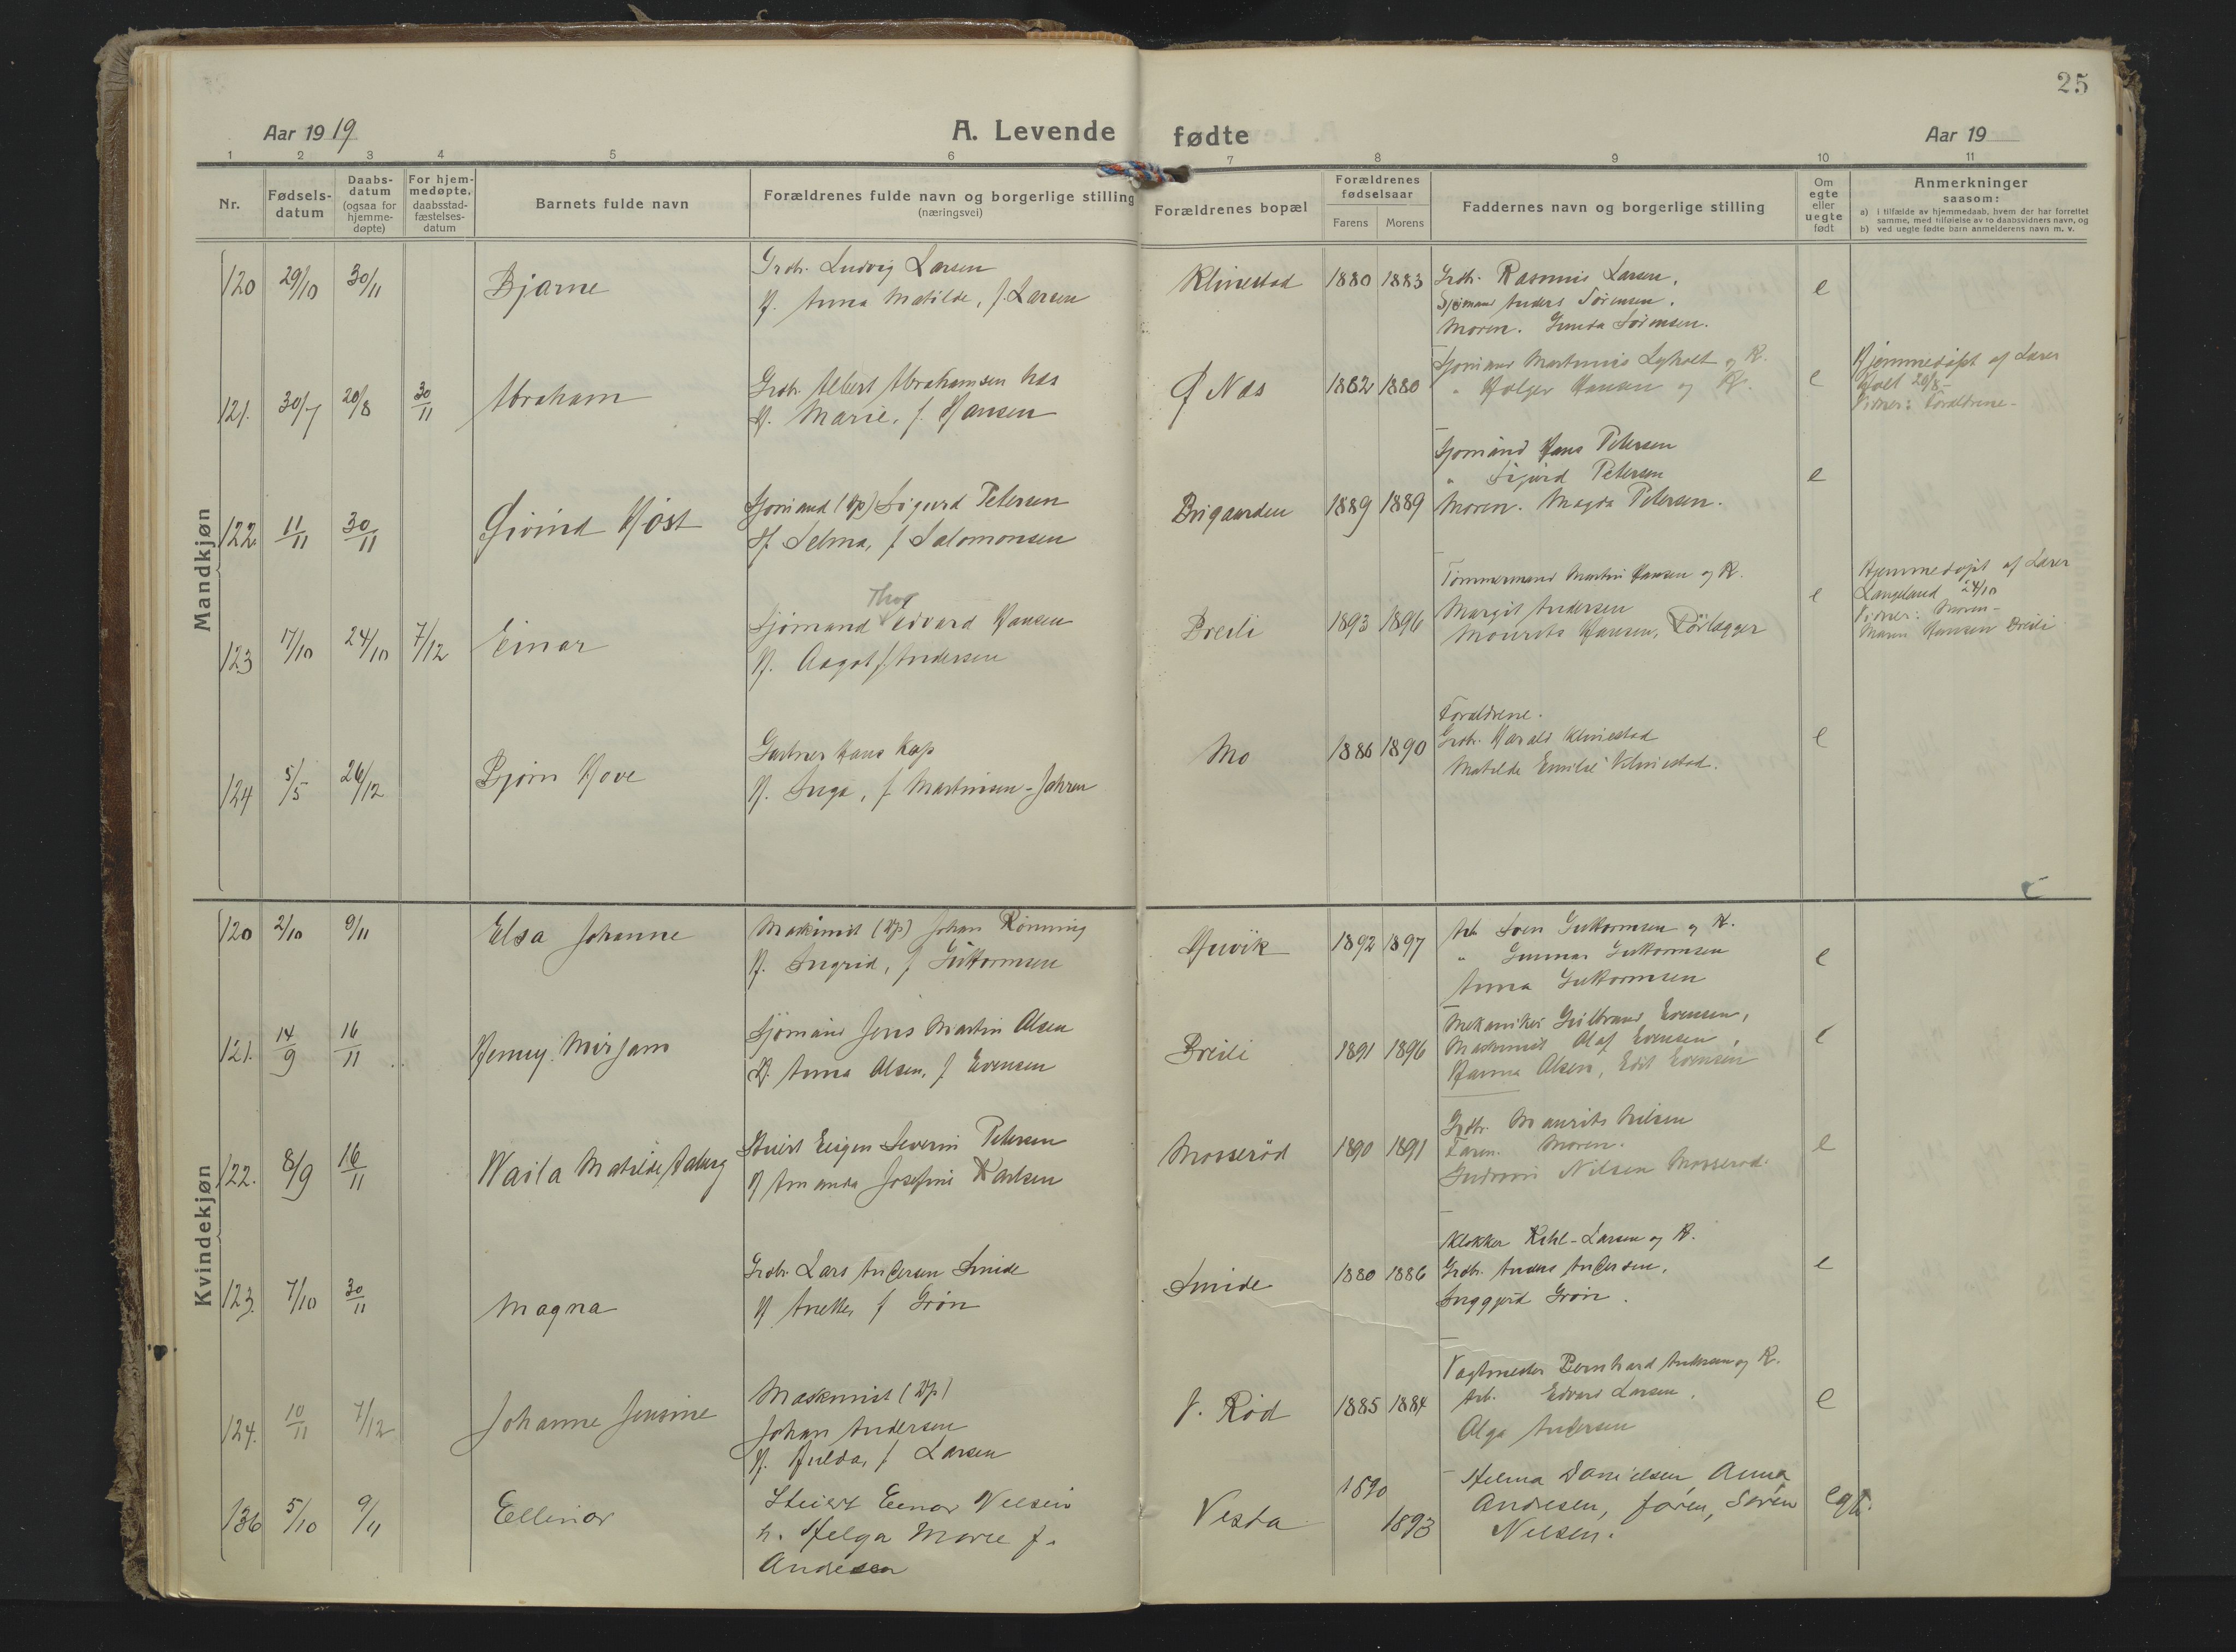 25
Aar 1919
A. Levende fødte
Aar 19
1 2 3 4 5 6 7 8 9 10 11
Nr.
Fødsels-
datum
Daabs-
datum
(ogsaa for
hjemme-
døpte)
For hjem-
medøpte,
daabsstad-
fæstelses-
datum
Barnets fulde navn
Forældrenes fulde navn og borgerlige stilling
(næringsvei)
Forældrenes bopæl
Forældrenes
fødselsaar
Farens Morens
Faddernes navn og borgerlige stilling
Om
egte
eller
uegte
født
Anmerkninger
saasom:
a) i tilfælde av hjemmedaab, hvem der har forrettet
samme, med tilføielse av to daabsvidners navn, og
b) ved uegte fødte barn anmelderens navn m. v.
Mandkjøn
120 29/10 30/11 Bjarne
Grdbr. Ludvig Larsen
H. Anna Matilde, f. Larsen
Klinestad 1880 1883
Grdbr. Rasmus Larsen,
Sjømand Anders Sørensen.
Moren. Gunda Sørensen.
e
121. 30/7 20/8 30/11 Abraham
Grdbr. Albert Abrahamsen Næs
H. Marie, f. Hansen
Ø Næs 1882 1880
Sjømand Martinius Lyholt og K.
" Holger Hansen og K.
e
Hjemmedøpt af Lærer
Holt 20/8 -
Vidner: Forældrene -
122. 11/11 30/11 Øivind Høst
Sjømand (Dp) Sigurd Petersen
H Selma, f Salomonsen
1889 1889
Sjømand Hans Petersen
" Sigurd Petersen
Moren. Magda Petersen.
e
123 17/10 24/10 7/12 Einar
Thv
Sjømand Edvard Hansen
H. Aagot f Andersen
Breili 1893 1896
Tømmermand Martin Hansen og K.
Margit Andersen
Mourits Hansen, Rørlægger
e
Hjemmedøpt af Lærer
Langeland 24/10
Vidner: Moren -
Maren Hansen Breili
124 5/5 26/12 Bjørn Hove
Gartner Hans Kap
H. Inga, f Martinsen - Jahren
Mo 1886 1890
Forældrene.
Grdbr. Harald Klinestad
Matilde Emilie Klinestad.
e
Kvindekjøn
120 2/10 9/11 Elsa Johanne
Maskinist (Dp) Johan Rønning
H. Ingrid, f Guttormsen
1892 1897
Arb. Sven Guttormsen og K.
" Gunnar Guttormsen
Anna Guttormsen
e
121. 14/9 16/11 Henny Mirjam
Sjømand Jens Martin Olsen
H. Anna Olsen, f Evensen
Breili 1891 1896
Mekaniker Gulbrand Evensen,
Maskinist Olaf Evensen,
Hanna Olsen, Edit Evensen
e
122. 8/9 16/11 Waila Matilde
Stuert Eigen Severin Petersen
H Amanda Josefine Karlsen
Mosserød 1890 1891
Grdbr. Maurits Nilsen
Faren. Moren.
Gudrun Nilsen Mosserød.
e
123. 7/10 30/11 Magna
Grdbr. Lars Andersen Smide
H Anette, f Grøn
Smide 1880 1886
Klokker Kihl-Larsen og K.
Grdbr. Anders Andersen,
Inggjerd Grøn.
e
124. 10/11 7/12 Johanne Jensine
Maskinist (Dp)
Johan Andersen
H. Hulda, f Larsen
V. Rød 1885 1884
Vagtmester Bernhard Andersen og K.
Arb. Edvard Larsen,
Olga Andersen
e
136 5/10 9/11 Ellinor
Stuert Einar Nielsen
h. Helga Marie f.
Andresen
Vesta 1890 1893
Helma Danielsen, Anna
Andresen, faren, Søren
Nielsen.
egte.